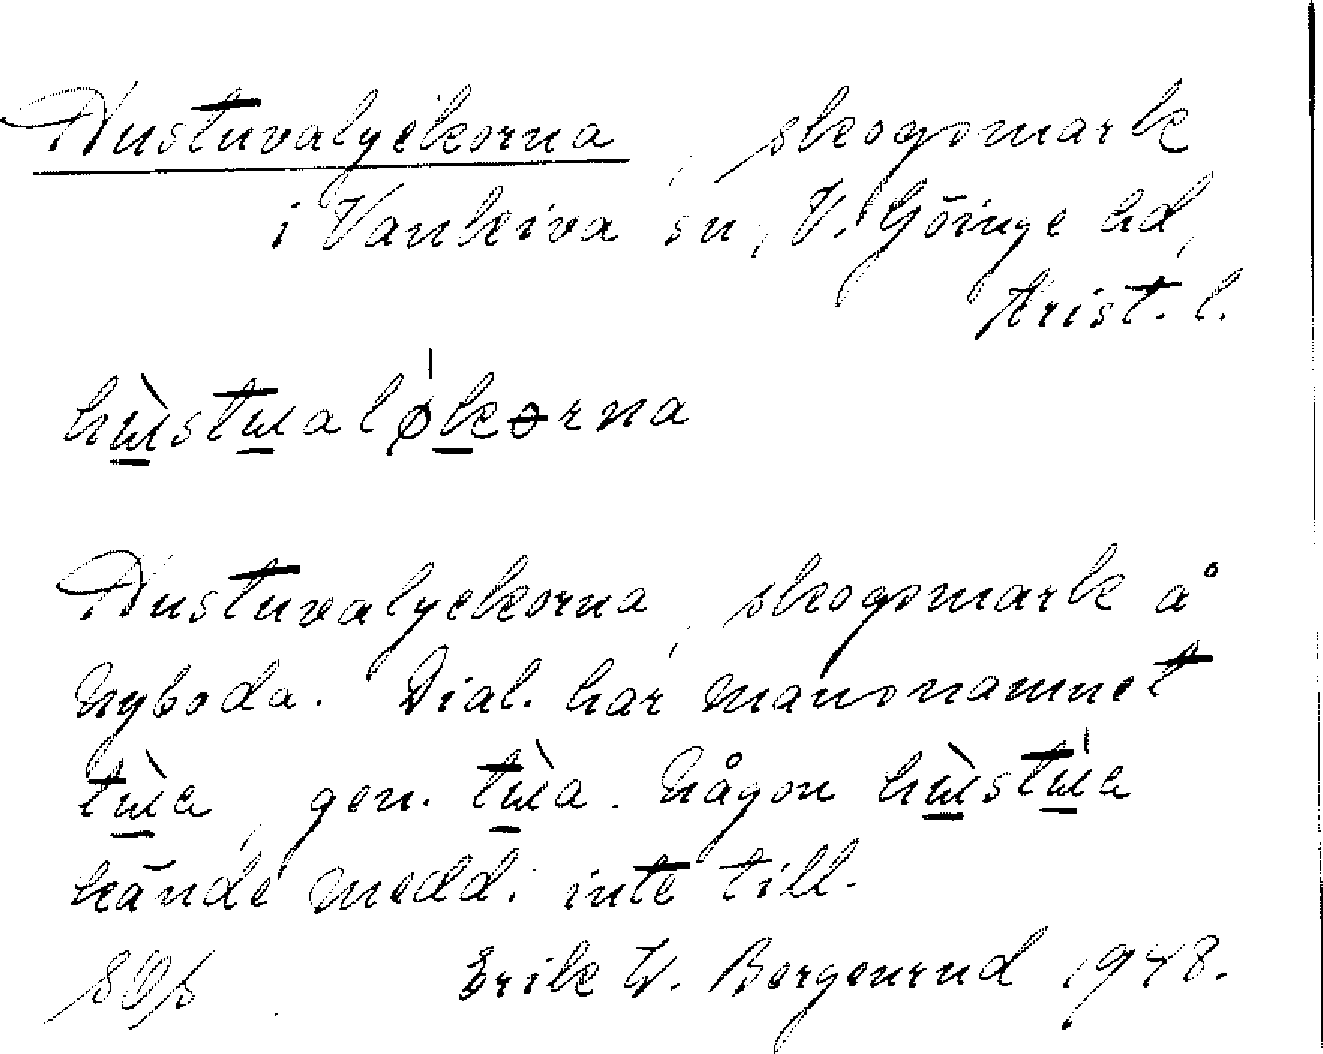 Hustuvalyckorna, skogsmark
i Vankiva sn, V. Göinge hd,
Krist. l.
hùstualøkørna
Hustuvalyckorna, skogsmark å
Nyboda. Dial. har mansnamnet
tùa, gen. tùa. Någon hùstua
kände medd. inte till.
Erik W. Bergenrud 1948.